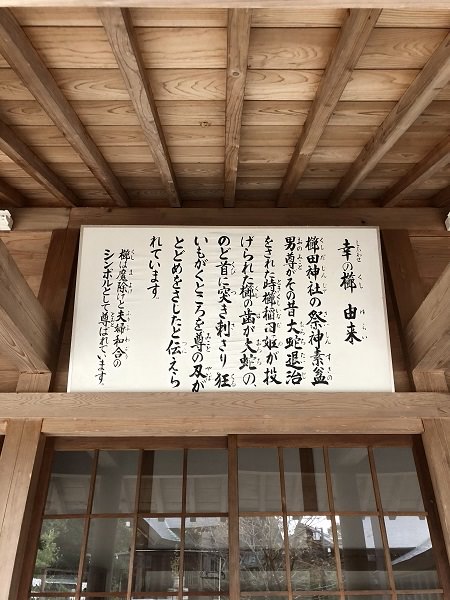 幸の櫛 由来
櫛田神社の祭神素盆
男尊がその昔大蛇退治
をされた時櫛稲田姫が投
げられた櫛の歯が大蛇の、
のど首に突き刺さり狂
いもがくところを尊の刃が
とどめをさしたと伝えら
れています。
櫛は魔除けと夫婦和合の
シンボルとして尊ばれています。